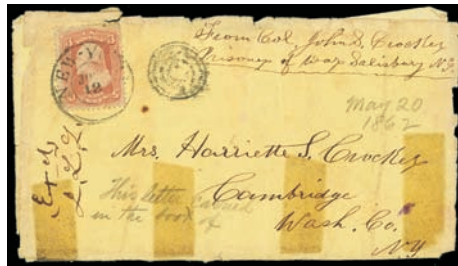 From Col. John S. Crocker
Prisoner of war Salisbury N.C.
NEW-Y
12
May 20
1862
Mrs. Harriette S. Crocker
Cambridge
Wash. Co.
NY
This letter carried
in the boot of
Ex'd